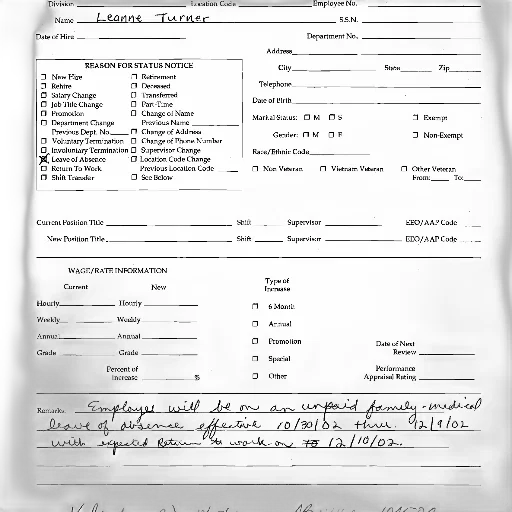 Division Location Code Employee No.
Name Leanne Turner S.S.N.
Date of Hire Department No.
Address
REASON FOR STATUS NOTICE
City State Zip
New Hire Retirement
Rehire Deceased
Telephone
Salary Change Transferred
Job Title Change Part-Time
Date of Birth
Promotion Change of Name
Marital Status: M S Exempt
Department Change Previous Name
Previous Dept. No. Change of Address
Gender: M F Non-Exempt
Voluntary Termination Change of Phone Number
Involuntary Termination Supervisor Change
Race/Ethnic Code
Leave of Absence Location Code Change
Return To Work Previous Location Code
Non Veteran Vietnam Veteran Other Veteran
Shift Transfer See Below
From: To:
Current Position Title Shift Supervisor EEO/AAP Code
New Position Title Shift Supervisor EEO/AAP Code
WAGE/RATE INFORMATION
Current New
Type of
Increase
Hourly Hourly
6 Month
Weekly Weekly
Annual
Annual Annual
Promotion
Date of Next
Review
Grade Grade
Special
Percent of
Increase %
Other
Performance
Appraisal Rating
Remarks: Employee will be on an unpaid family-medical
leave of absence effective 10/30/02 thru. 12/9/02
with expected Return to work on 12/10/02.